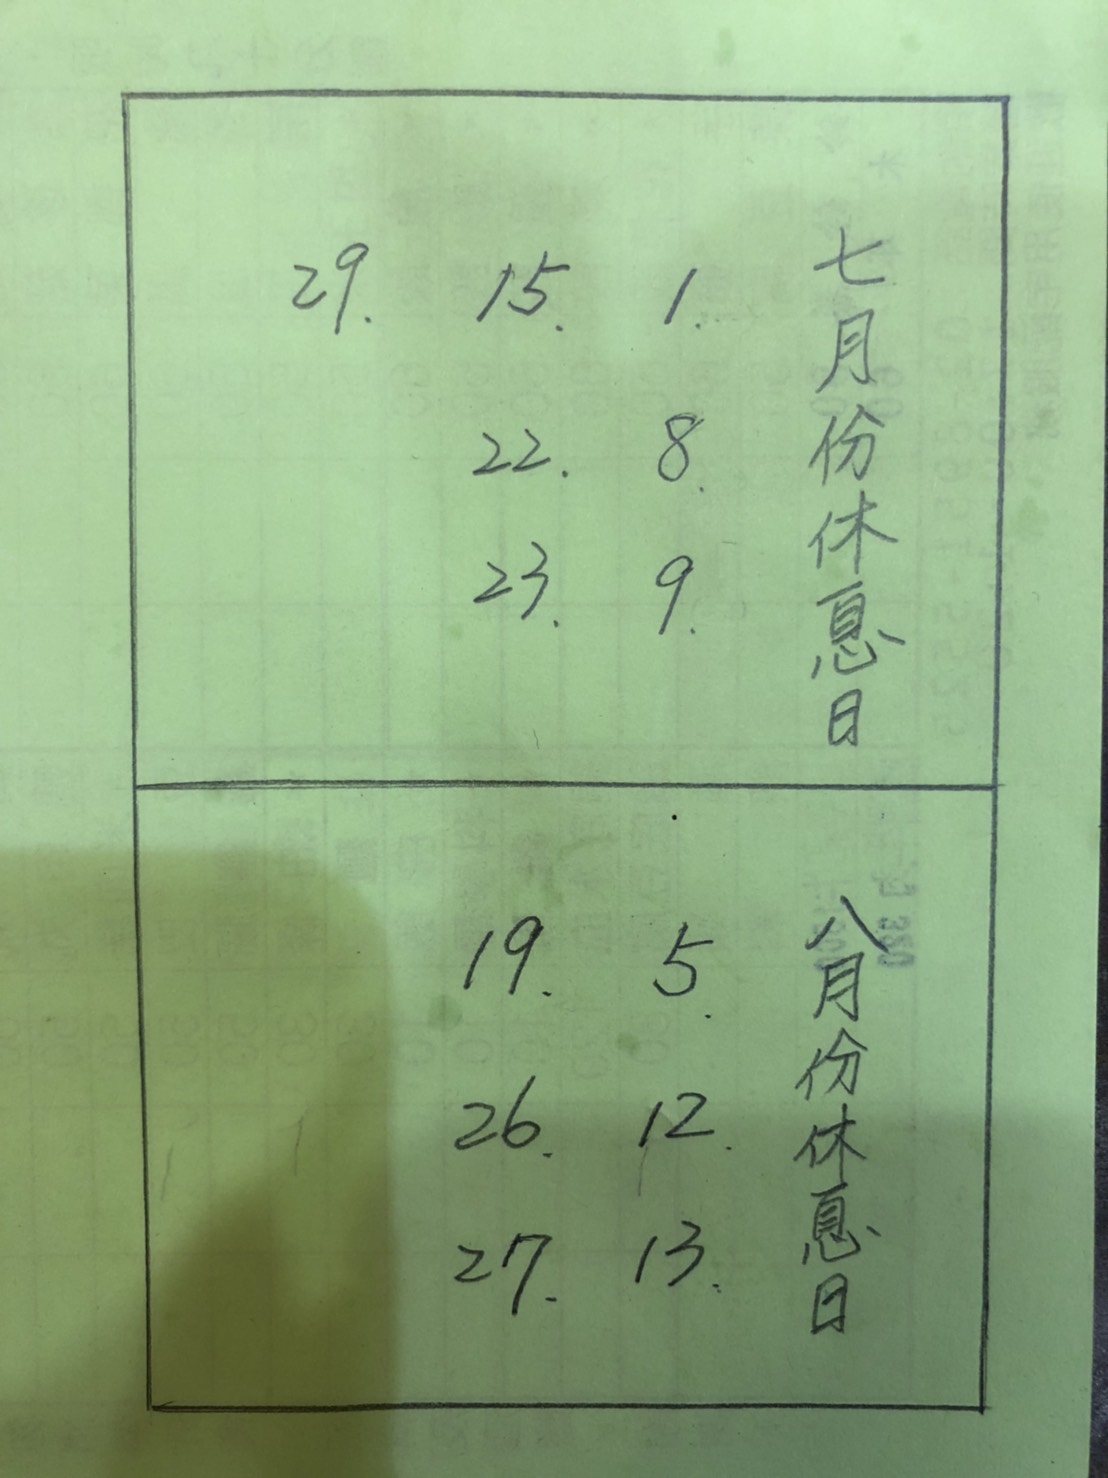 七月份休息日
1. 8. 9.
15. 22. 23.
29.
八月份休息日
5. 12. 13.
19. 26. 27.